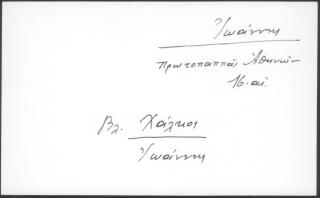 Ἰωάννης
Πρωτοπαππᾶς Ἀθηνῶν
16. αἰ.
Βλ. Χάλκος
Ἰωάννης